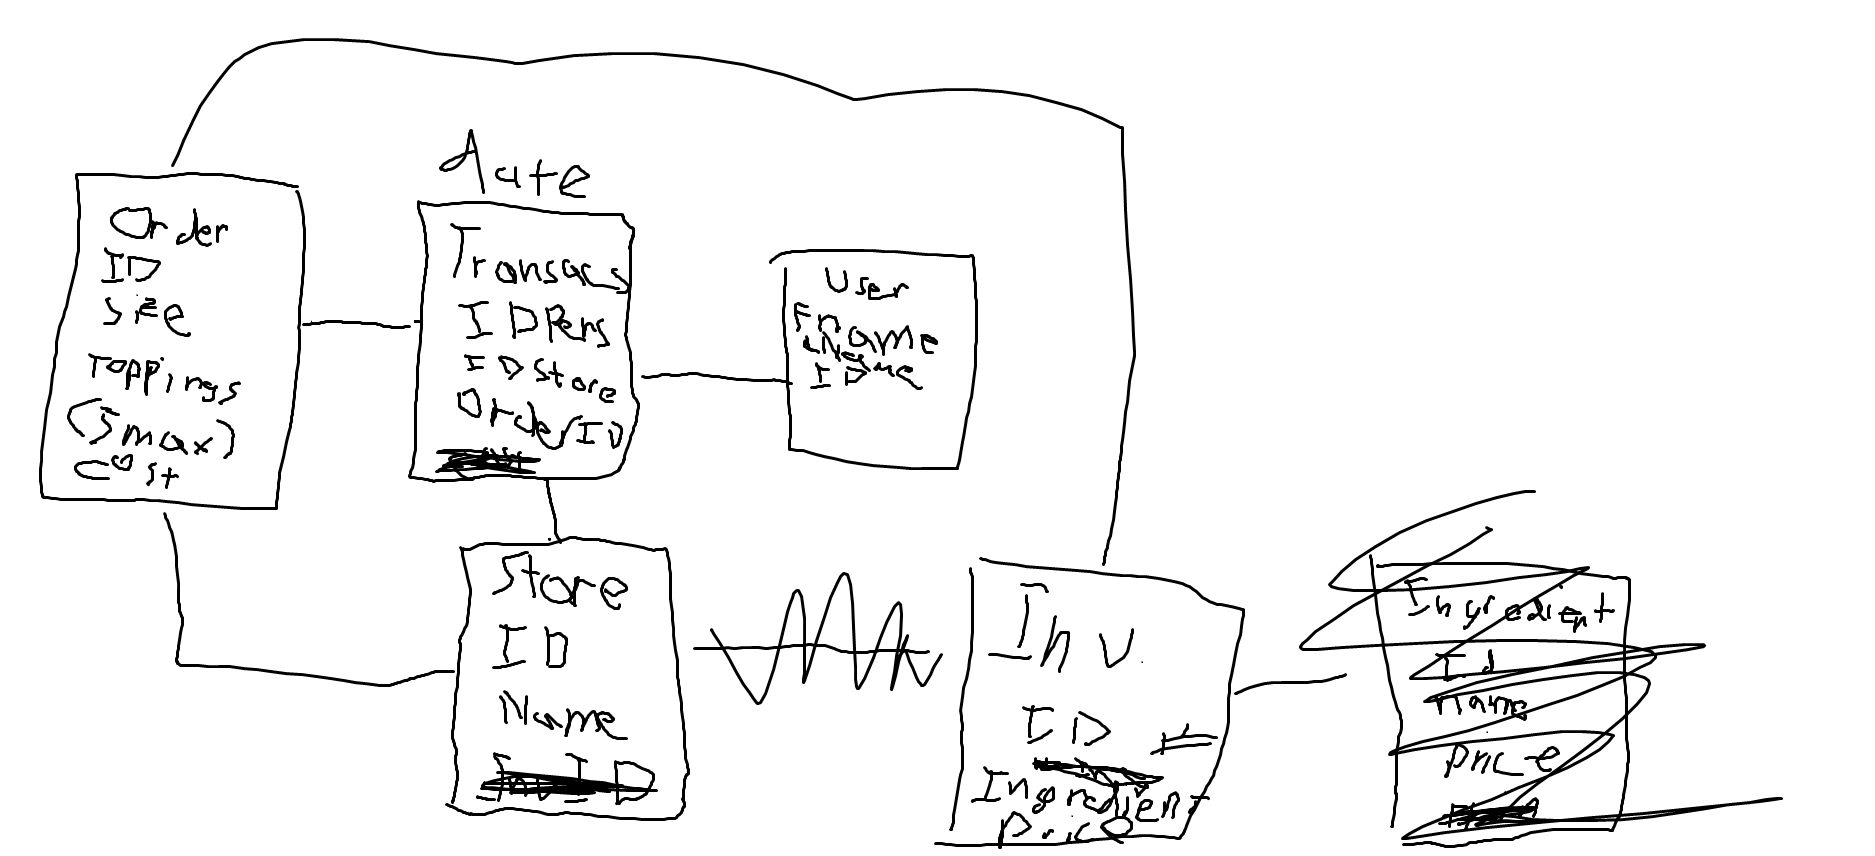 date
Order
ID
Size
Toppings
(5max)
Cost
Transacs
IDPers
IDStore
OrderID
User
Fname
LName
ID
Store
ID
Name
InvID
Inv
ID
Ingredient
Price
Ingredient
Id
name
price